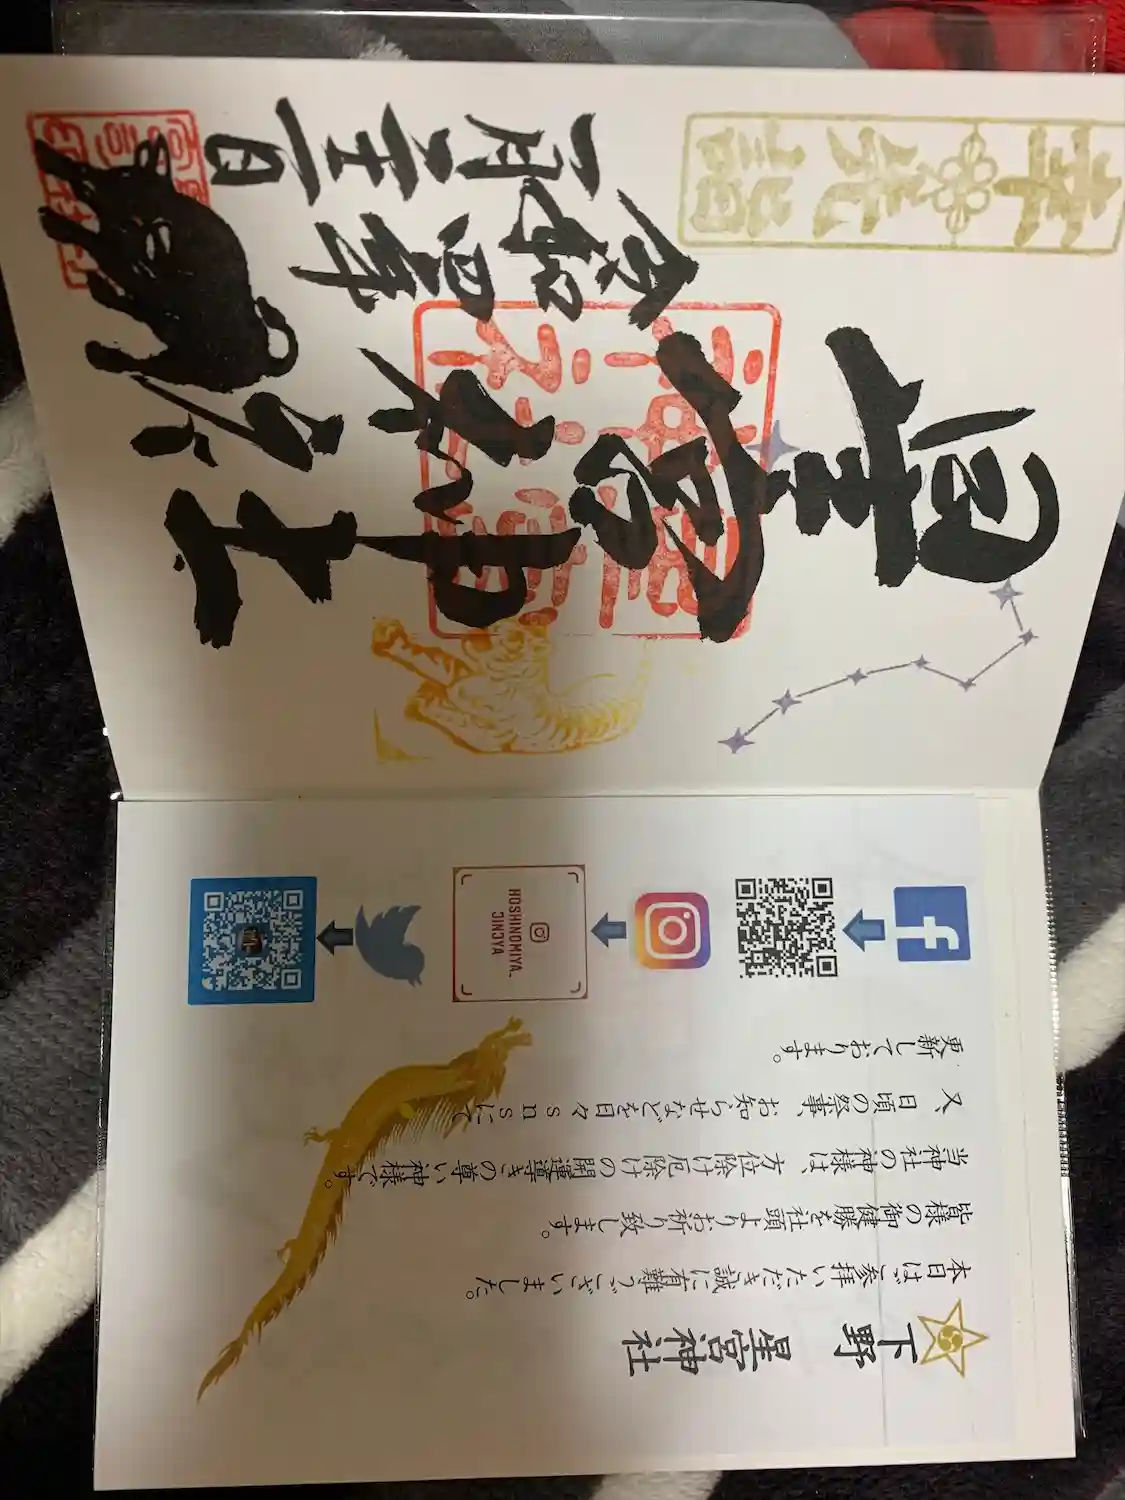 幸先詣
星宮神社
令和四年
一月二十一日
下野 星宮神社
本日はご参拝いただき誠に有難うございました。
皆様の御健勝を社頭よりお祈り致します。
当神社の神様は、方位除け厄除けの開運導きの尊い神様です。
又、日頃の祭事、お知らせなどを日々snsにて
更新しております。
HOSHINOMIYA_
JINJYA